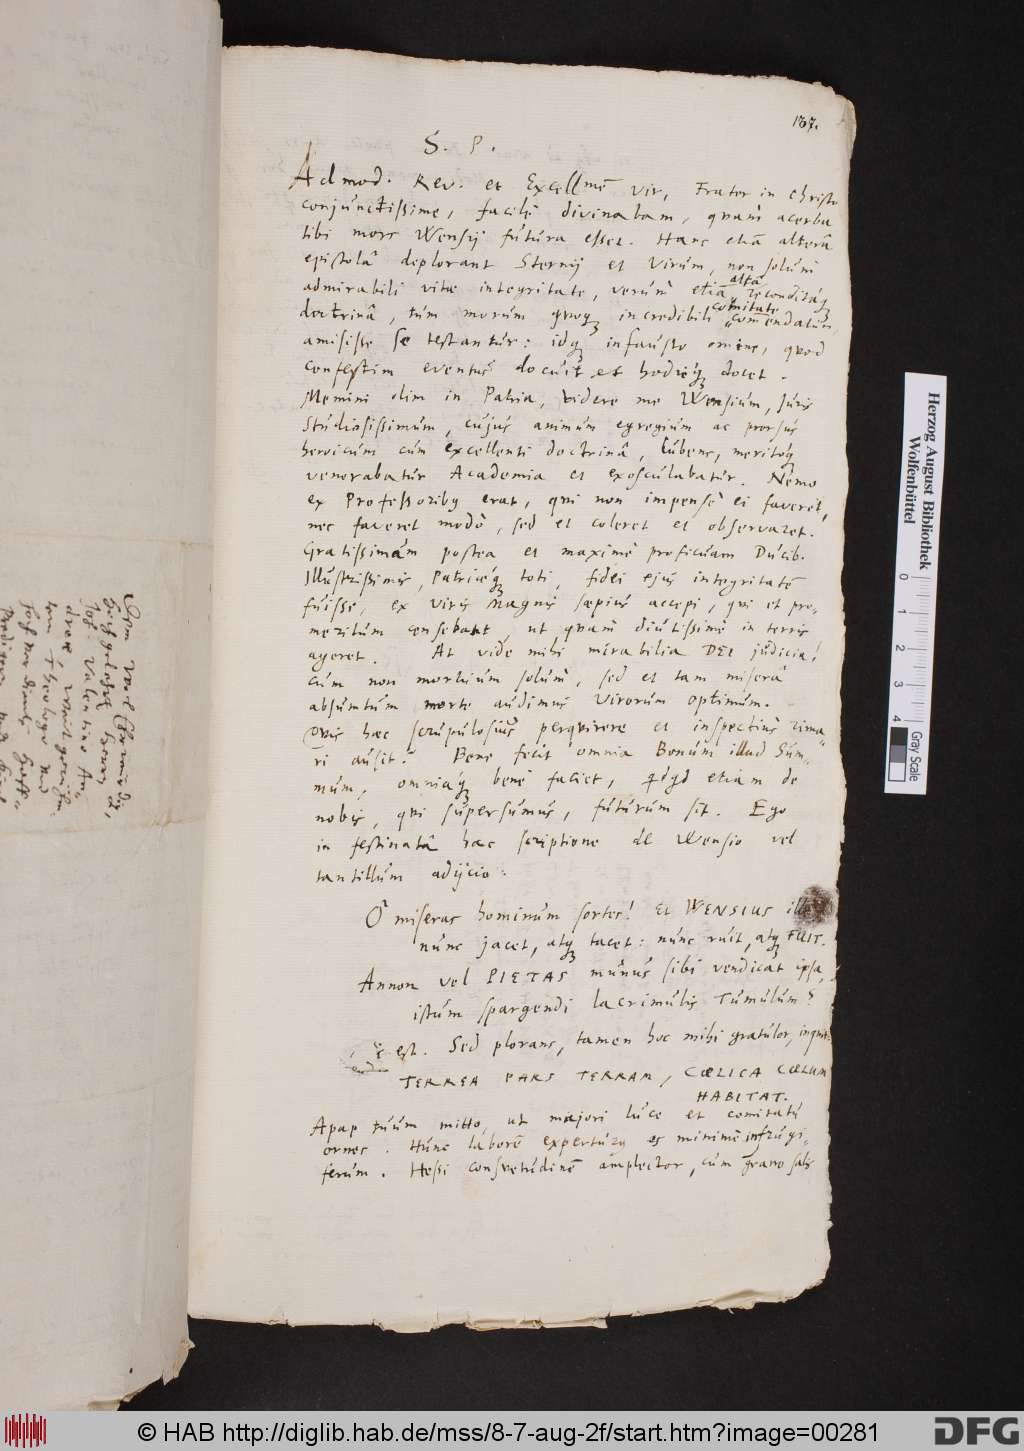 187.
S. P.
Admod. Rev. et Excellme Vir, Frater in Christo
conjunctissime, facilè divinabam, quàm acerba
tibi mors Wensij futura esset. Hanc etiã alterâ
epistolâ deplorant Sternij et Virum, non solùm
admirabili vitæ integritate, verùm etiã altâ reconditâq
doctrinâ, tùm morum quoq incredibili comitate comendatũ
amisisse se testantur: idq infausto omine, quod
confestim eventus docuit et hodieq docet.
Memini olim in Patria, videre me Wensium, Juris
Studiosissimum, cujus animum egregium ac prorsus
heroicum cum excellenti doctrinâ, lubens, meritoq
venerabatur Academia et exosculabatur. Nemo
ex Professoribq erat, qui non impensè ei faveret,
nec faveret modò, sed et coleret et observaret.
Gratissimam postea et maximè proficuam Ducib.
Illustrissimis, Patriæq toti, fidei ejus integritatẽ
fuisse, ex viris Magnis sæpius accepi, qui et pro-
meritum censebant, ut quàm diutissimè in terris
ageret. At vide mihi mirabilia DEI judicia!
cum non mortuum solùm, sed et tam miserâ
absumtum morte audimus Virorum optimum.
Quis hæc scrupulosius perquirere et inspectius rima-
ri ausit? Bene fecit omnia Bonum illud Sum-
mum, omniaq benè faciet, qdqd etiam de
nobis, qui supersumus, futurum sit. Ego
in festinatâ hac scriptione de Wensio vel
tantillùm adijcio:
O miseras hominum sortes! et WENSIUS ille
nunc jacet, atq tacet: nunc ruit, atq FUIT.
Annon vel PIETAS munus sibi vendicat ipsa,
istum spargendi lacrimulis Tumulum?
est. Sed plorans, tamen hoc mihi gratulor, inquit:
TERREA PARS TERRAM, CŒLICA CŒLUM
HABITAT.
Apap tuum mitto, ut majori luce et comitatu
ornes. Hunc laborẽ experturq es minimè infrugi-
ferum. Hessi consvetudinẽ amplector, cum grano salis
Herzog August Bibliothek
Wolfenbüttel
0 1 2 3 4
Gray Scale
© HAB http://diglib.hab.de/mss/8-7-aug-2f/start.htm?image=00281
DFG